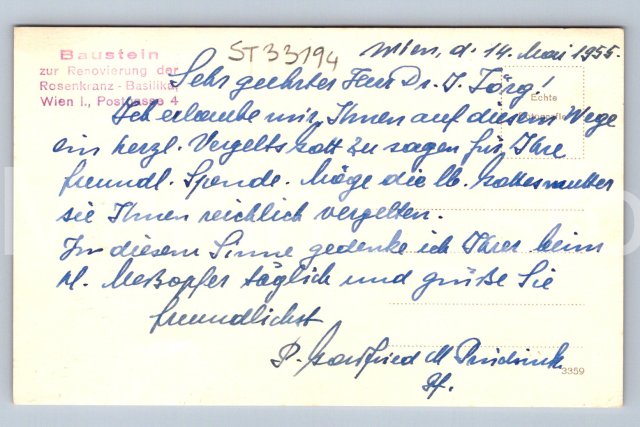 Baustein
zur Renovierung der
Rosenkranz-Basilika,
Wien I., Postgasse 4
ST33194
Wien, d. 14. Mai 1955.
Echte
Sehr geehrter Herr Dr. J. Jörg!
Ich erlaube mir, Ihnen auf diesem Wege
ein herzl. Vergelts Gott zu sagen für Ihre
freundl. Spende. Möge die lb. Gottesmutter
sie Ihnen reichlich vergelten.
In diesem Sinne gedenke ich Ihrer beim
hl. Meßopfer täglich und grüße Sie
freundlichst
P. Gottfried M.
3359